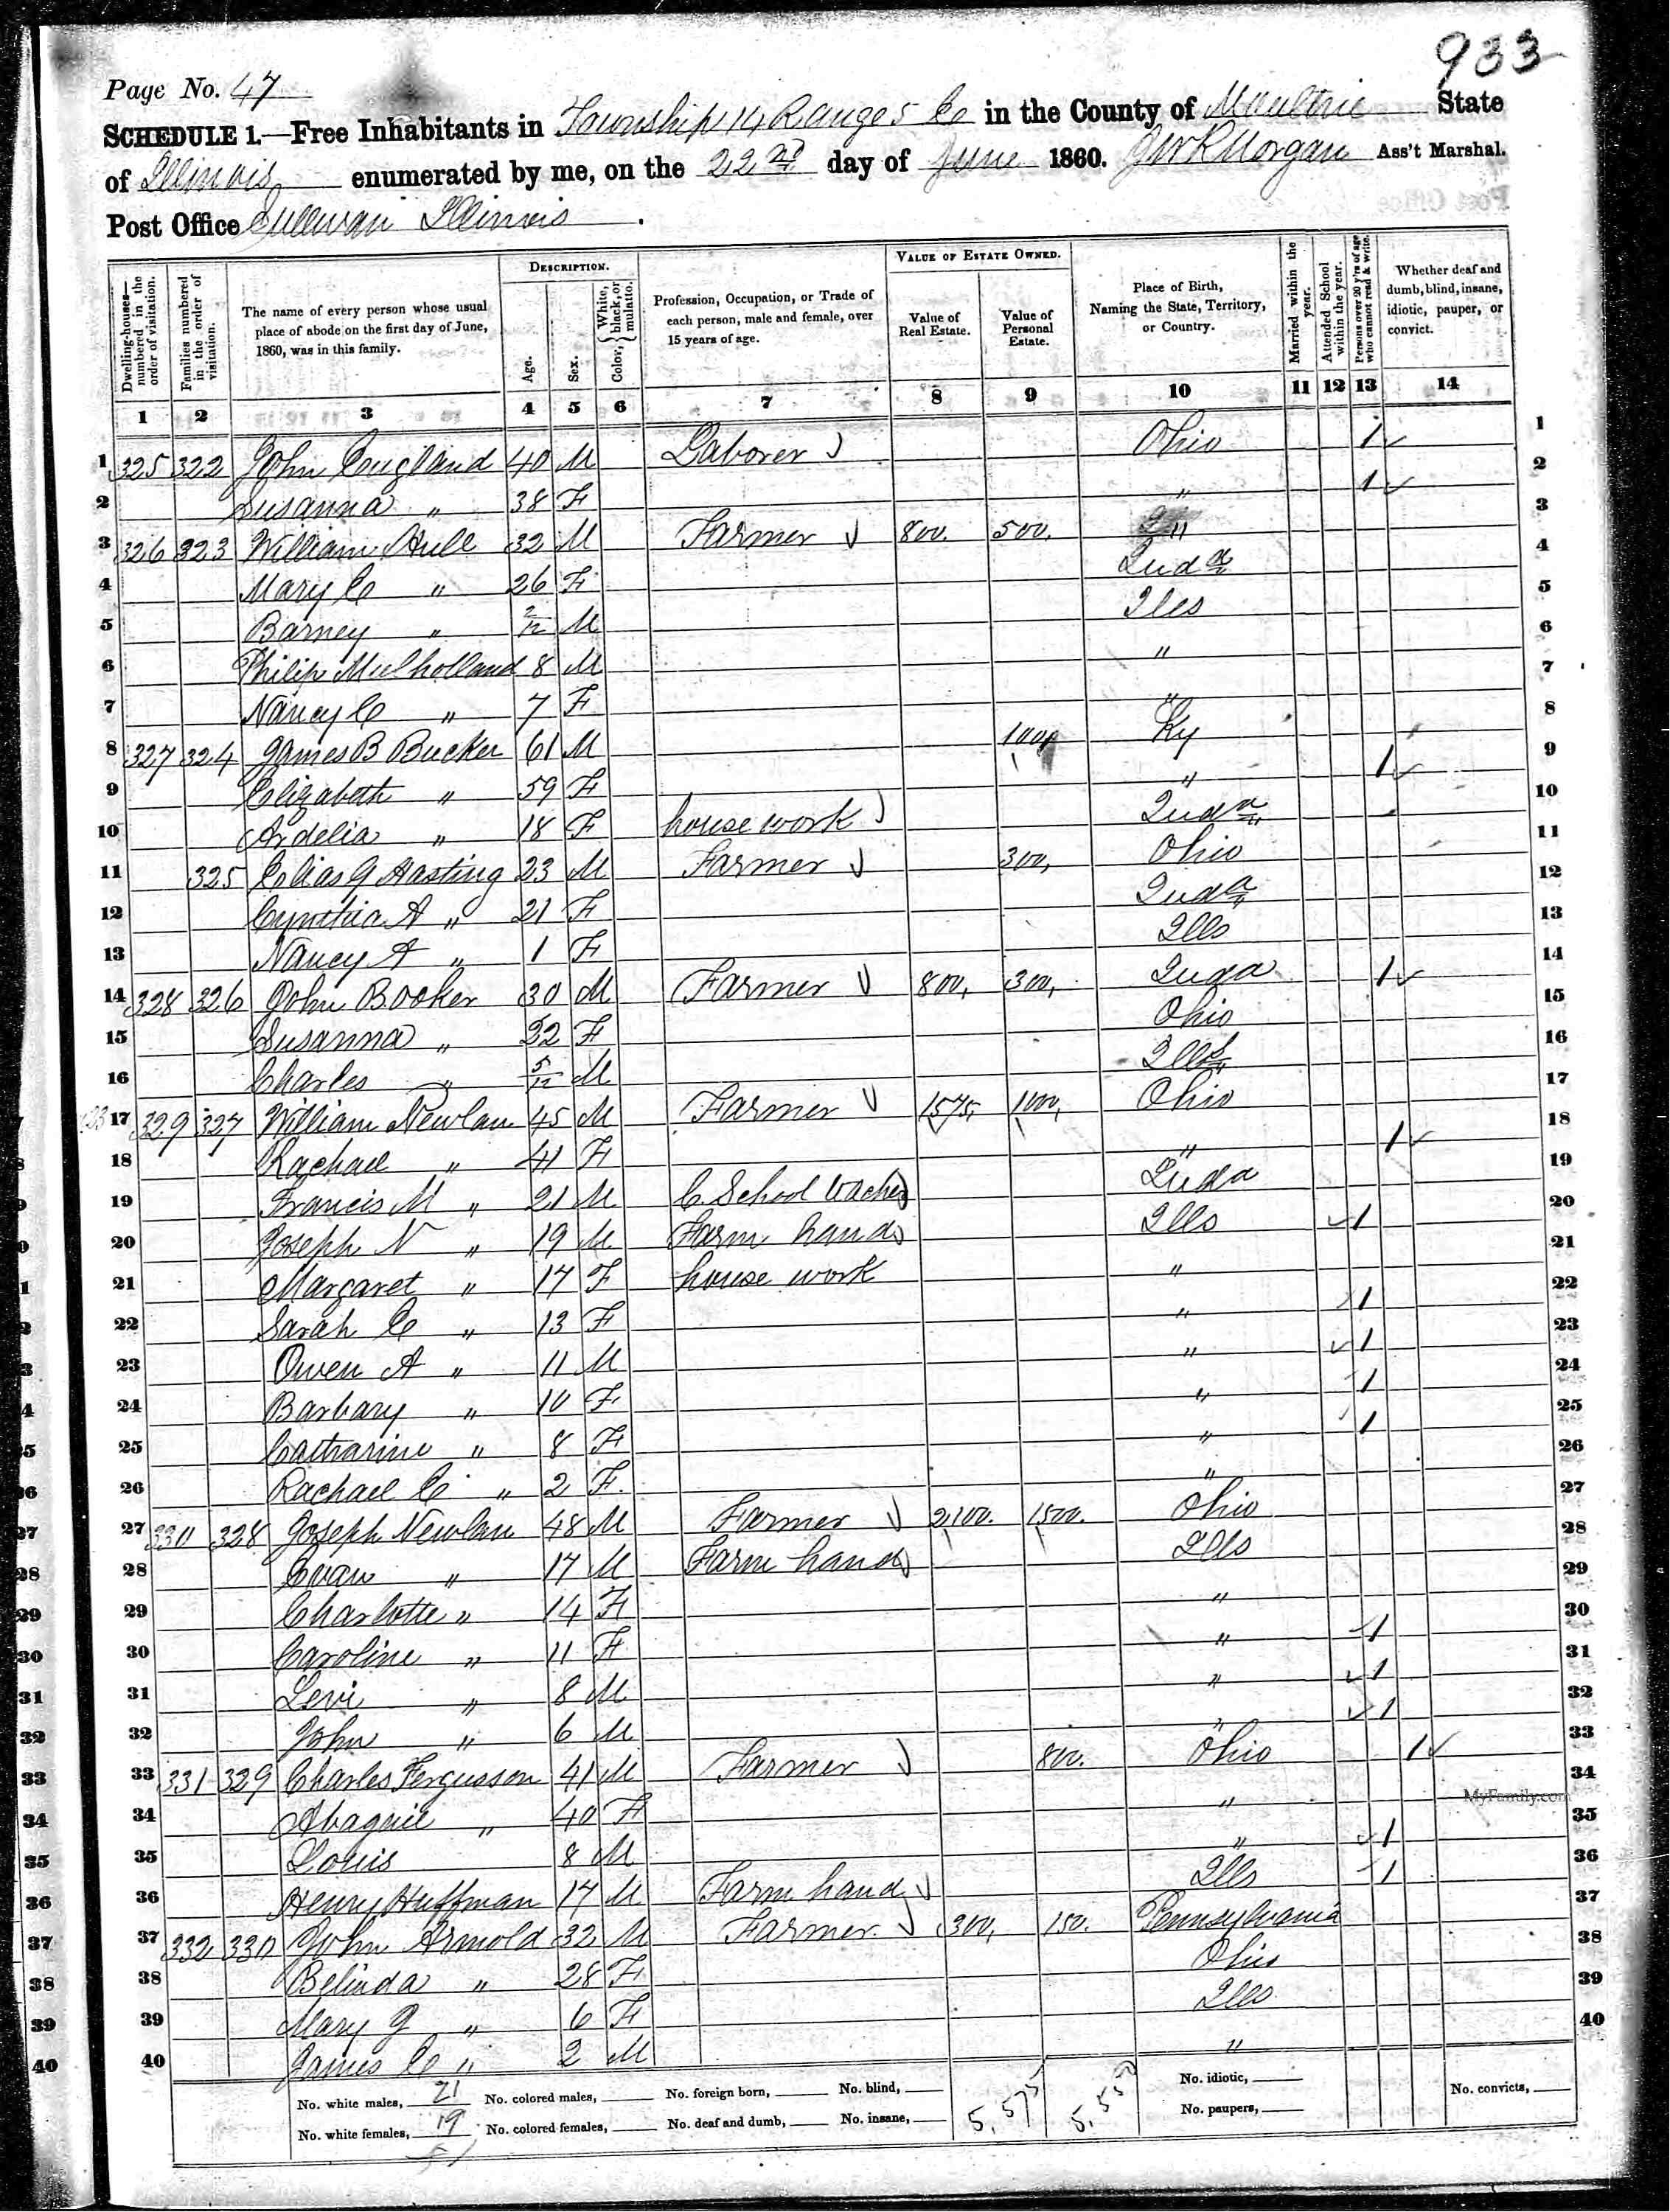 933
Page No. 47
SCHEDULE 1.—Free Inhabitants in Township 14 Range 5 in the County of Moultrie State
of Illinois enumerated by me, on the 22nd day of June 1860. Morgan Ass't Marshal.
Post Office Sullivan Illinois.
Dwelling-houses—numbered in the order of visitation.
Families numbered in the order of visitation.
The name of every person whose usual place of abode on the first day of June, 1860, was in this family.
DESCRIPTION.
Age.
Sex.
Color, { White, black, or mulatto.
Profession, Occupation, or Trade of each person, male and female, over 15 years of age.
VALUE OF ESTATE OWNED.
Value of Real Estate.
Value of Personal Estate.
Place of Birth, Naming the State, Territory, or Country.
Married within the year.
Attended School within the year.
Persons over 20 y'rs of age who cannot read & write.
Whether deaf and dumb, blind, insane, idiotic, pauper, or convict.
1 2 3 4 5 6 7 8 9 10 11 12 13 14
1 325 322 John 40 M Laborer Ohio 1 1
2 Susanna " 38 F " 1 2
3 326 323 William Hull 32 M Farmer 800. 500. " 3
4 Mary C " 26 F Inda 4
5 Barney " 2/12 M Ills 5
6 Philip Mulholland 8 M " 6
7 Nancy C " 7 F " 7
8 327 324 James B 61 M 100 Ky 8
9 Elizabeth " 59 F " 1 9
10 Ardelia " 18 F house work Inda 10
11 325 Elias G Hasting 23 M Farmer 300, Ohio 11
12 Cynthia A " 21 F Inda 12
13 Nancy A " 1 F Ills 13
14 328 326 John Booker 30 M Farmer 800, 300, Inda 1 14
15 Susanna " 22 F Ohio 15
16 Charles " 5/12 M Ills 16
17 329 327 William Newlan 45 M Farmer 1575, 1100, Ohio 17
18 Rachael " 41 F " 1 18
19 Francis M " 21 M C. School teacher Inda 19
20 Joseph N " 19 M Farm hand Ills 1 20
21 Margaret " 17 F house work " 21
22 Sarah C " 13 F " 1 22
23 Owen A " 11 M " 1 23
24 Barbary " 10 F " 1 24
25 Catharine " 8 F " 1 25
26 Rachael C " 2 F. " 26
27 330 328 Joseph Newlan 48 M Farmer 2,100. 1500. Ohio 27
28 Evan " 17 M Farm hand Ills 28
29 Charlotte " 14 F " 29
30 Caroline " 11 F " 1 30
31 Levi " 8 M " 1 31
32 John " 6 M " 1 32
33 331 329 Charles Fergusson 41 M Farmer 800. Ohio 1 33
34 " 40 F " 34
35 Louis 8 M " 1 35
36 Henry Huffman 17 M Farm hand Ills 1 36
37 332 330 John Arnold 32 M Farmer. 300, 150. Pennsylvania 37
38 Belinda " 28 F Ohio 38
39 Mary J " 6 F Ills 39
40 James C " 2 M " 40
No. white males, 21 No. colored males, No. foreign born, No. blind, No. idiotic, No. convicts,
No. white females, 19 No. colored females, No. deaf and dumb, No. insane, 5,575 5,550 No. paupers,
MyFamily.com